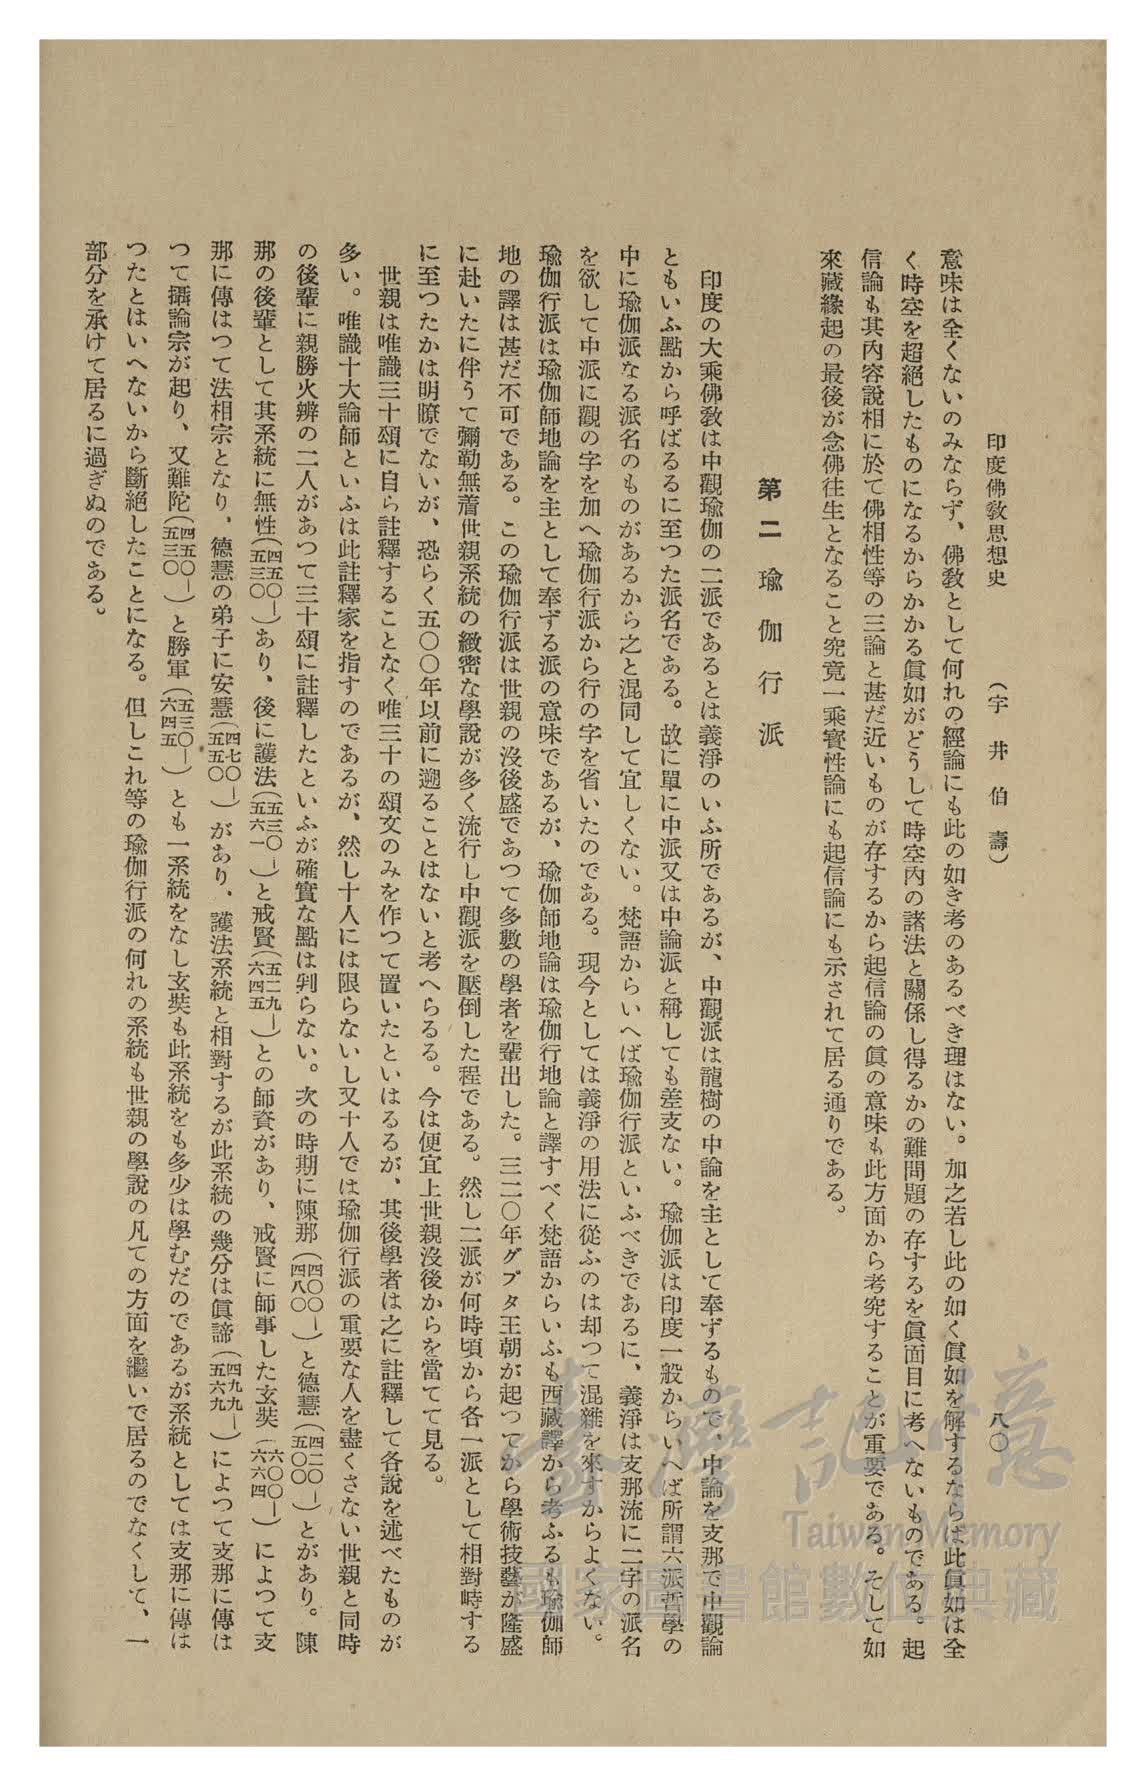 印度佛敎思想史　（宇井伯壽）　八〇
意味は全くないのみならず、佛敎として何れの經論にも此の如き考のあるべき理はない。加之若し此の如く眞如を解するならば此眞如は全
く時空を超絕したものになるからかかる眞如がどうして時空內の諸法と關係し得るかの難問題の存するを眞面目に考へないものである。起
信論も其內容說相に於て佛相性等の三論と甚だ近いものが存するから起信論の眞の意味も此方面から考究することが重要である。そして如
來藏緣起の最後が念佛往生となること究竟一乘寶性論にも起信論にも示されて居る通りである。
第二　瑜伽行派
印度の大乘佛敎は中觀瑜伽の二派であるとは義淨のいふ所であるが、中觀派は龍樹の中論を主として奉ずるもので、中論を支那で中觀論
ともいふ點から呼ばるるに至つた派名である。故に單に中派又は中論派と稱しても差支ない。瑜伽派は印度一般からいへば所謂六派哲學の
中に瑜伽派なる派名のものがあるから之と混同して宜しくない。梵語からいへば瑜伽行派といふべきであるに、義淨は支那流に二字の派名
を欲して中派に觀の字を加へ瑜伽行派から行の字を省いたのである。現今としては義淨の用法に從ふのは却つて混雜を來すからよくない。
瑜伽行派は瑜伽師地論を主として奉ずる派の意味であるが、瑜伽師地論は瑜伽行地論と譯すべく梵語からいふも西藏譯から考ふるも瑜伽師
地の譯は甚だ不可である。この瑜伽行派は世親の沒後盛であつて多數の學者を輩出した。三二〇年グプタ王朝が起つてから學術技藝が隆盛
に赴いたに伴うて彌勒無着世親系統の緻密な學說が多く流行し中觀派を壓倒した程である。然し二派が何時頃から各一派として相對峙する
に至つたかは明瞭でないが、恐らく五〇〇年以前に遡ることはないと考へらるる。今は便宜上世親沒後からを當てて見る。
世親は唯識三十頌に自ら註釋することなく唯三十の頌文のみを作つて置いたといはるるが、其後學者は之に註釋して各說を述べたものが
多い。唯識十大論師といふは此註釋家を指すのであるが、然し十人には限らないし又十人では瑜伽行派の重要な人を盡くさない世親と同時
の後輩に親勝火辨の二人があつて三十頌に註釋したといふが確實な點は判らない。次の時期に陳那（四〇〇―四八〇）と德慧（四二〇―五〇〇）とがあり。陳
那の後輩として其系統に無性（四五〇―五三〇）あり、後に護法（五三〇―五六一）と戒賢（五二九―六四五）との師資があり、戒賢に師事した玄奘（六〇〇―六六四）によつて支
那に傳はつて法相宗となり，德慧の弟子に安慧（四七〇―五五〇）があり，護法系統と相對するが此系統の幾分は眞諦（四九九―五六九）によつて支那に傳は
つて攝論宗が起り、又難陀（四五〇―五三〇）と勝軍（五三〇―六四五）とも一系統をなし玄奘も此系統をも多少は學むだのであるが系統としては支那に傳は
つたとはいへないから斷絕したことになる。但しこれ等の瑜伽行派の何れの系統も世親の學說の凡ての方面を繼いで居るのでなくして、一
部分を承けて居るに過ぎぬのである。
臺灣記憶
Taiwan Memory
國家圖書館數位典藏